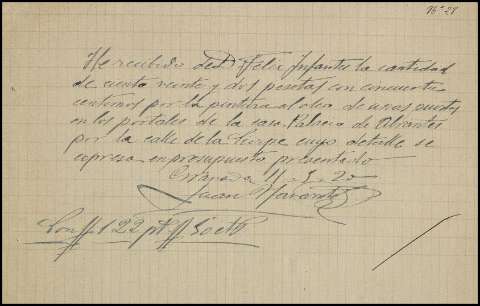 Nº 28
He recibido de Dn Felix Infantes la cantidad
de ciento veinte y dos pesetas con cincuenta
centimos por la pintura al oleo de unas puertas
en los portales de la casa Palacio de Abrantes
por la calle de la Sierpe cuyo detalle se
expresa en presupuesto presentado
Granada 11-3-20
Juan
Son // 122 pts // 50 cts